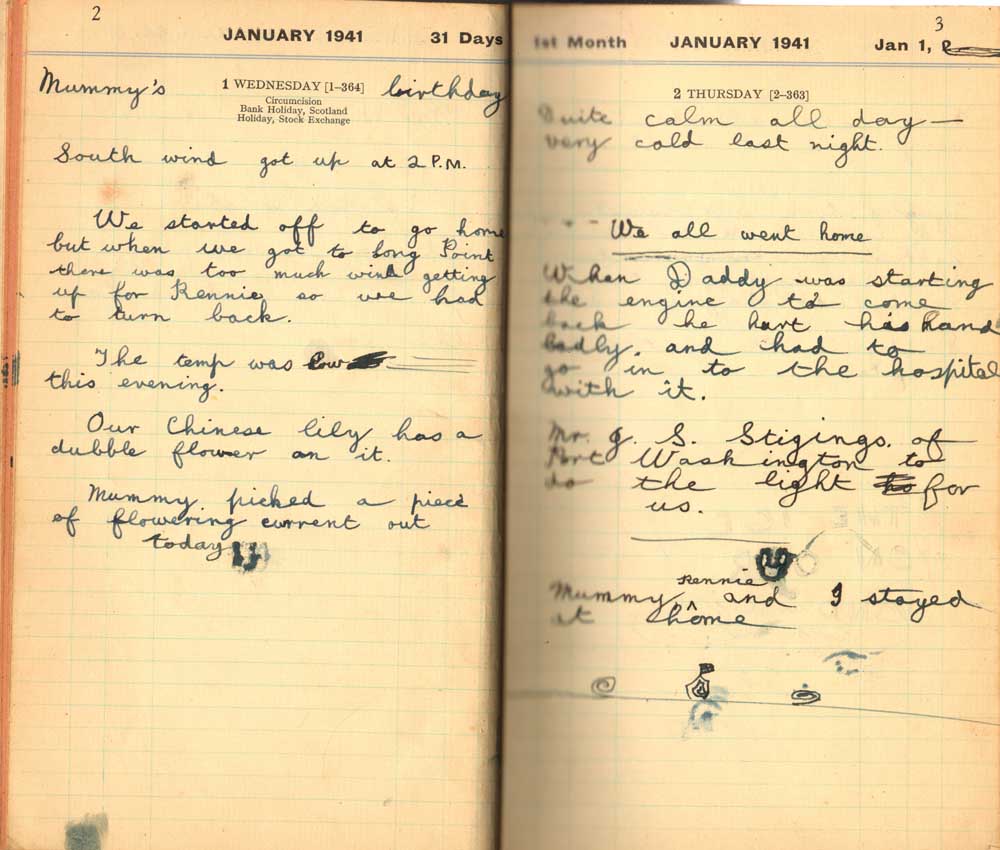 2
JANUARY 1941 31 Days
1 WEDNESDAY [1–364]
Mummy's birthday
Circumcision
Bank Holiday, Scotland
Holiday, Stock Exchange
South wind got up at 2 P.M.
We started off to go home
but when we got to Long Point
there was too much wind getting
up for Rennie so we had
to turn back.
The temp was low
this evening.
Our Chinese lily has a
dubble flower on it.
Mummy picked a piece
of flowering current out
today
3
1st Month JANUARY 1941 Jan 1,
2 THURSDAY [2–363]
Quite calm all day —
very cold last night.
We all went home
When Daddy was starting
the engine to come
back he hurt his hand
badly. and had to
go in to the hospital
with it.
Mr. J. S. Stigings. of
Port Washington to
do the light for
us.
Rennie
Mummy ^ and I stayed
at home